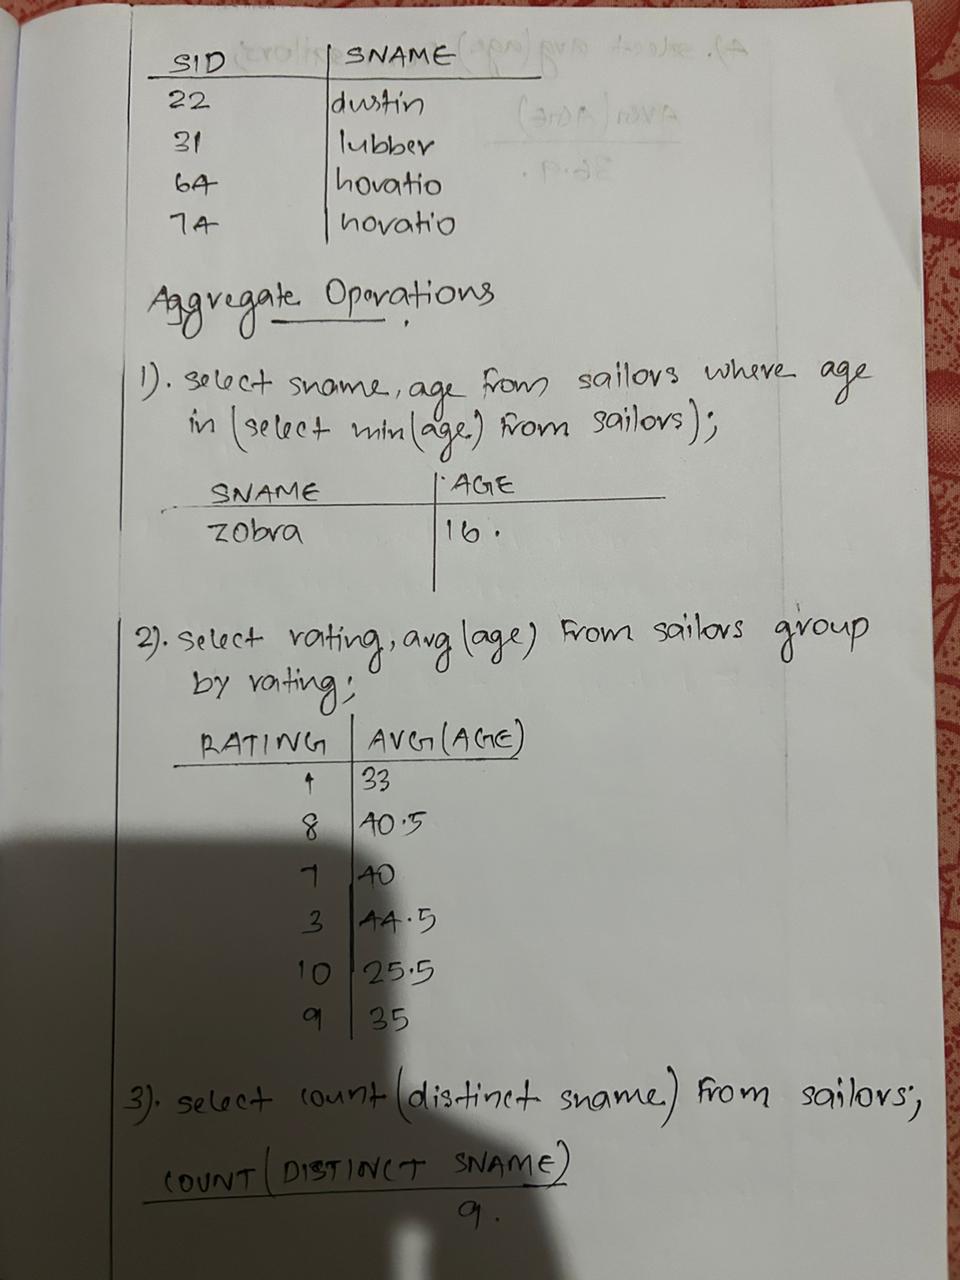 SID SNAME
22 dustin
31 lubber
64 horatio
74 horatio
Aggregate Operations
1). select sname, age from sailors where age
in (select min(age) from sailors);
SNAME AGE
zobra 16.
2). select rating, avg(age) from sailors group
by rating;
RATING AVG(AGE)
1 33
8 40.5
7 40
3 44.5
10 25.5
9 35
3). select count(distinct sname) from sailors;
COUNT(DISTINCT SNAME)
9.